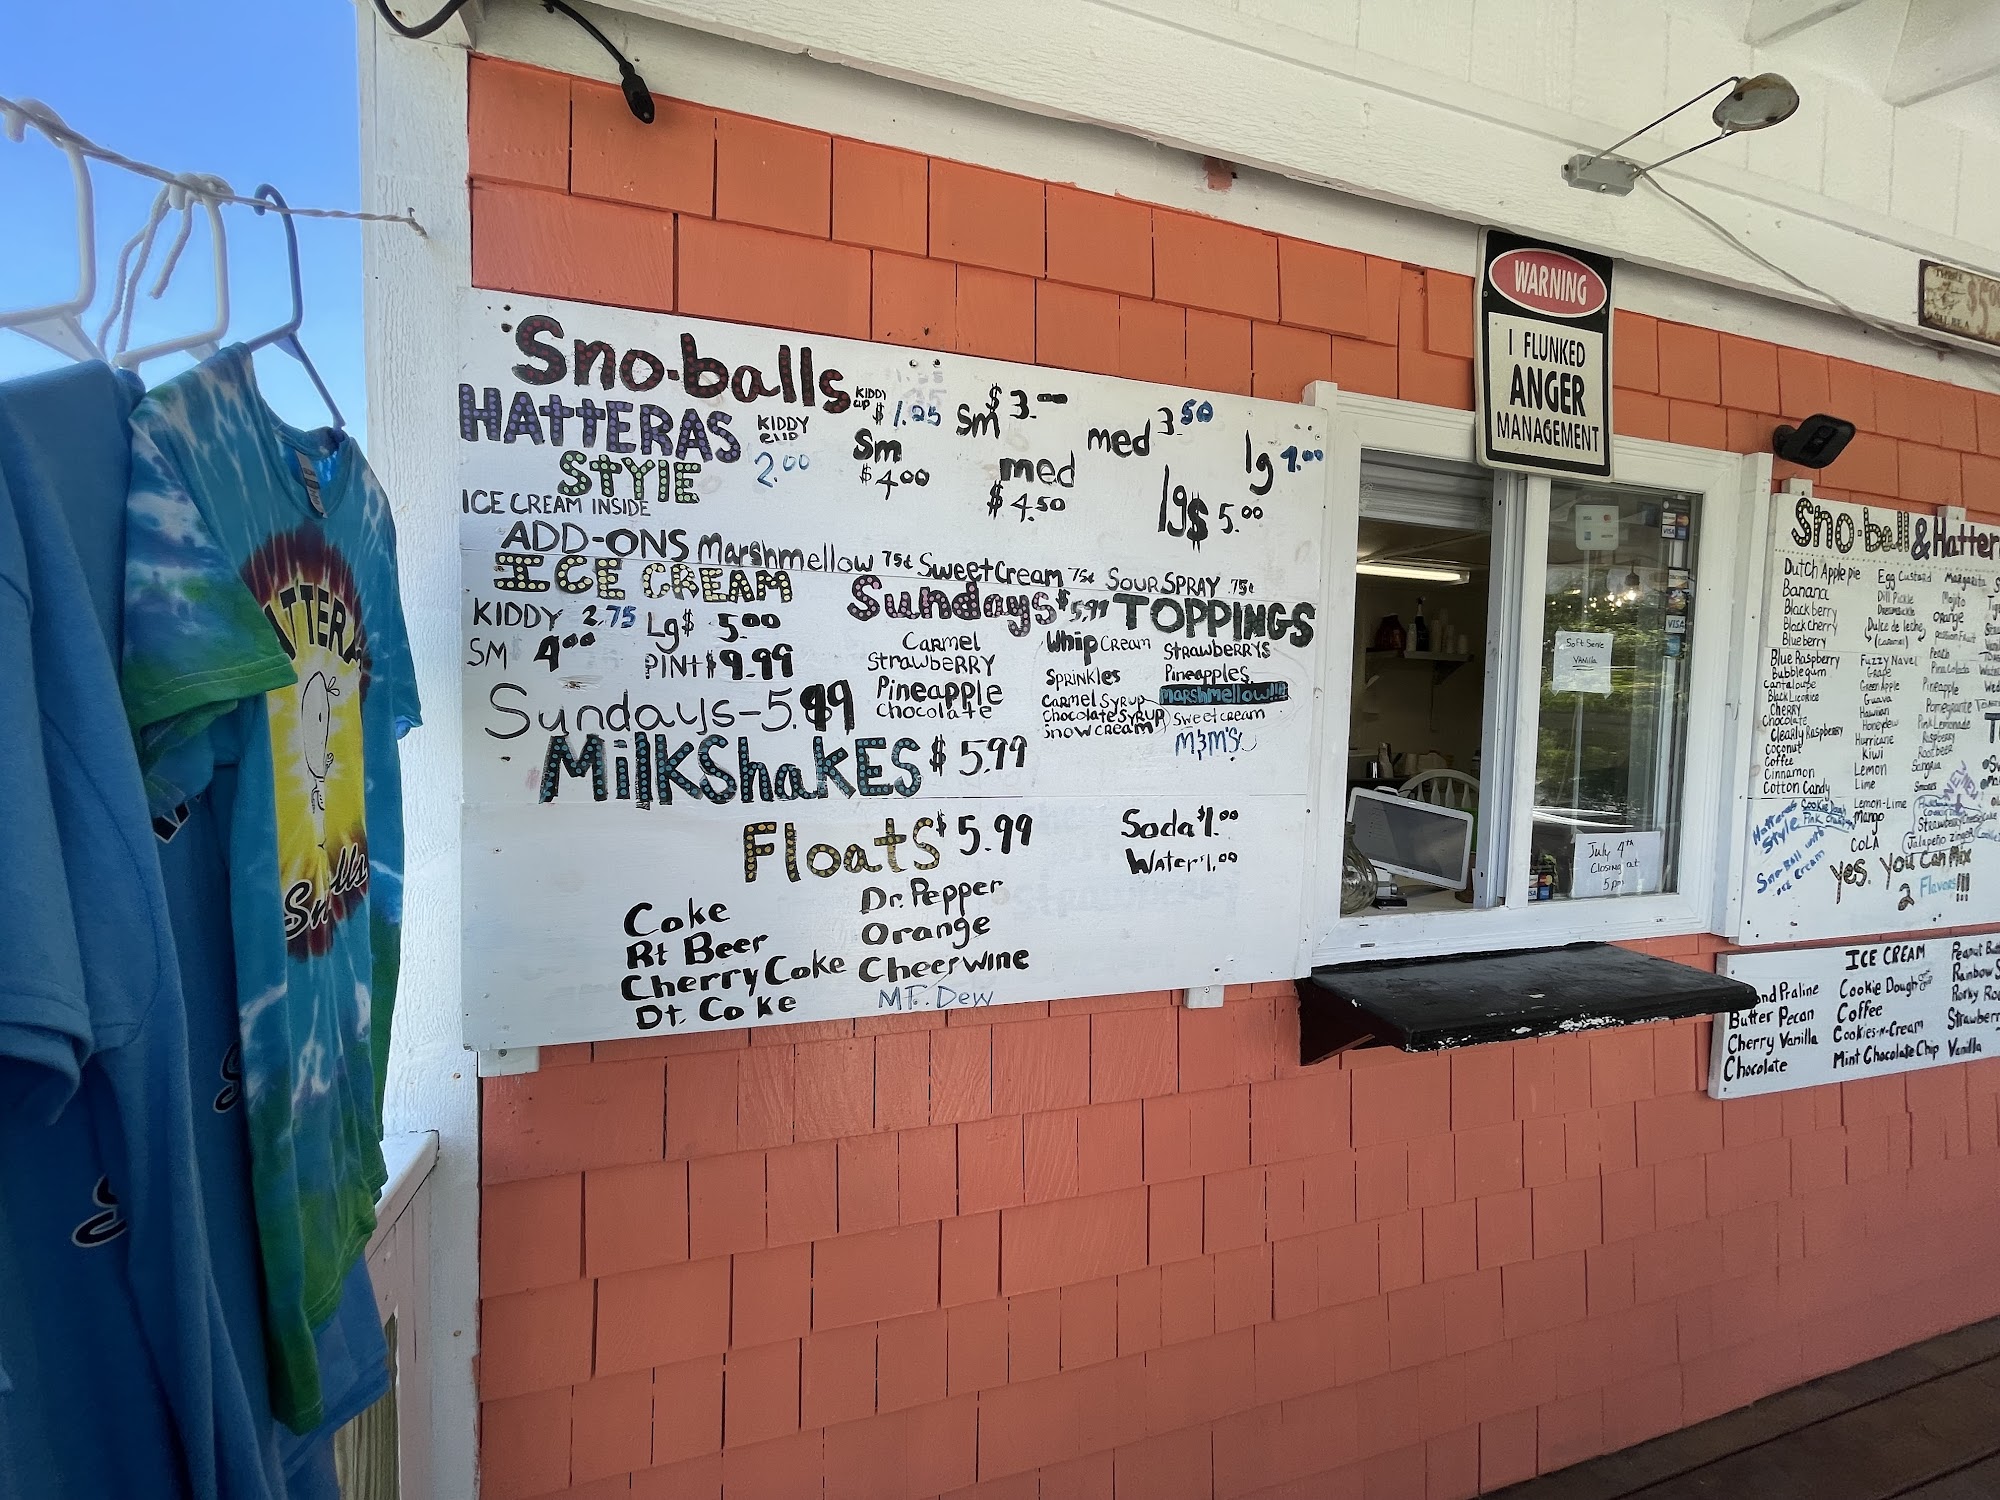 Sno-balls KIDDY CUP $1.25 Sm $3.00 med 3.50 lg 4.00
HATTERAS STYlE KIDDY CUP 2.00 Sm $4.00 med $4.50 lg $5.00
ICE CREAM INSIDE
ADD-ONS Marshmellow 75¢ Sweet Cream 75¢ SOUR SPRAY .75¢
ICE CREAM
KIDDY 2.75 Lg $ 5.00
SM 4.00 PINT $9.99
Sundays $5.99
Carmel
StrawbeRRY
Pineapple
Chocolate
TOPPINGS
Whip Cream
Sprinkles
Carmel Syrup
Chocolate Syrup
Snow Cream
Strawberrys
Pineapples
Marshmellow!!!
Sweet cream
M&M's
Sundays-5.99
MilKShaKES $5.99
FloatS $5.99
Coke
Rt Beer
Cherry Coke
Dt. Coke
Dr. Pepper
Orange
Cheerwine
MT. Dew
Soda $1.00
Water $1.00
WARNING
I FLUNKED
ANGER
MANAGEMENT
Soft Serve
Vanilla
July 4th
Closing at
5 pm
VISA
Sno-ball & Hatter
Dutch Apple pie
Banana
Blackberry
Black Cherry
Blueberry
Blue Raspberry
Bubblegum
Cantaloupe
Black Licorice
Cherry
Chocolate
Clearly Raspberry
Coconut
Coffee
Cinnamon
Cotton Candy
Egg Custard
Dill Pickle
Dreamsicle
Dulce de leche
(caramel)
Fuzzy Navel
Grape
Green Apple
Guava
Hawaiian
Honeydew
Hurricane
Kiwi
Lemon
Lime
Lemon-Lime
Mango
COLA
Margarita
Mojito
Orange
Passion Fruit
Peach
Pina Colada
Pineapple
Pomegranate
Pink Lemonade
Raspberry
Root beer
Sangria
Smores
NEW
Strawberry Cheesecake
Jalapeño zinger
Hatteras Style
Cookie Dough
Sno-Ball with
ice cream
Yes. You Can Mix
2 Flavors!!!
ICE CREAM
ond Praline
Butter Pecan
Cherry Vanilla
Chocolate
Cookie Dough
Coffee
Cookies-N-Cream
Mint Chocolate Chip
Peanut Bu
Rainbow S
Rocky Roa
Strawberr
Vanilla